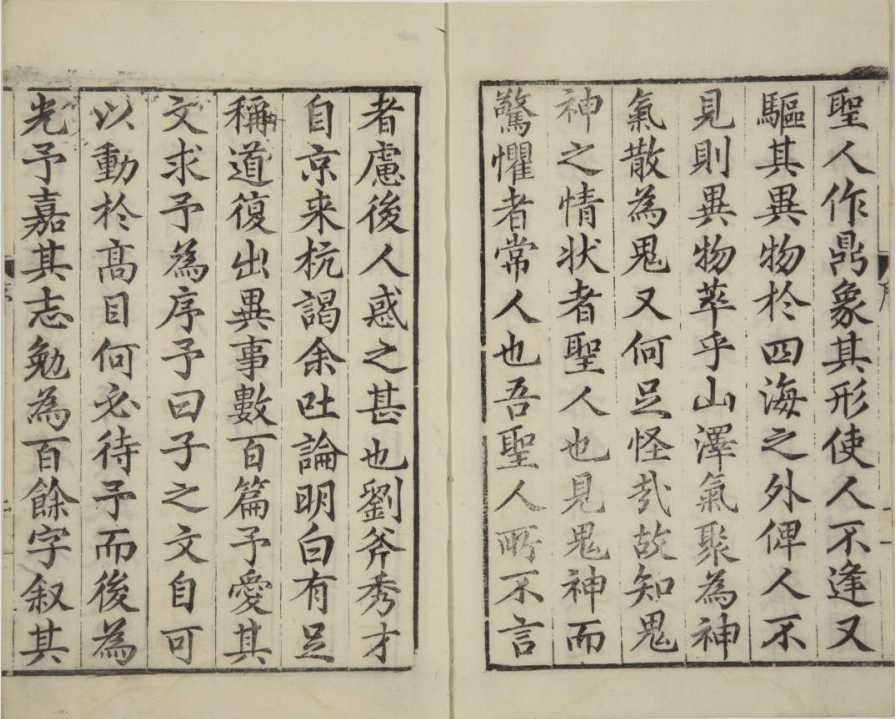 聖人作鼎象其形使人不逢又
驅其異物於四海之外俾人不
見則異物萃乎山澤氣聚為神
氣散為鬼又何足怪哉故知鬼
神之情狀者聖人也見鬼神而
驚懼者常人也吾聖人所不言
者慮後人惑之甚也劉斧秀才
自京来杭謁余吐論明白有足
稱道復出異事數百篇予愛其
文求予為序予曰子之文自可
以動於高目何必待予而後為
光予嘉其志勉為百餘字叙其